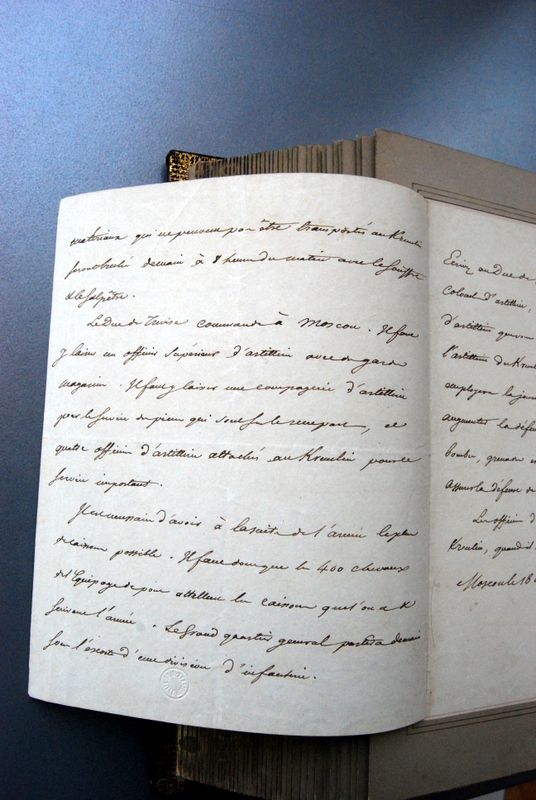 matériaux qui ne peuvent pas être transportés au Kremlin
sera brulé demain à 8 heures du matin avec le Souffre
& le Salpêtre.
Le Duc de Trévise commande à Moscou. Il faut
y laisser un officier Supérieur d'artillerie avec de garde
magasin. Il faut y laisser une compagnie d'artillerie
pour le Service des pièces qui sont sur le rempart, et
quatre officiers d'artillerie attachés au Kremlin pour le
Service important.
Il est nécessaire d'avoir à la suite de l'armée le plus
de caissons possible. Il faut donc que les 400 chevaux
de l'Equipage de pont attellent les caissons que l'on a &
suivent l'armée. Le Grand quartier général partira demain
sous l'escorte d'une division d'infanterie.
Ecrivez au Duc de
Colonel d'artillerie,
d'artillerie qui seront
l'artillerie du Kremlin
employera la journée
augmenter la défense
bombes, grenades
assurer la défense de
Les officiers d
Kremlin, quand il
Moscou le 18